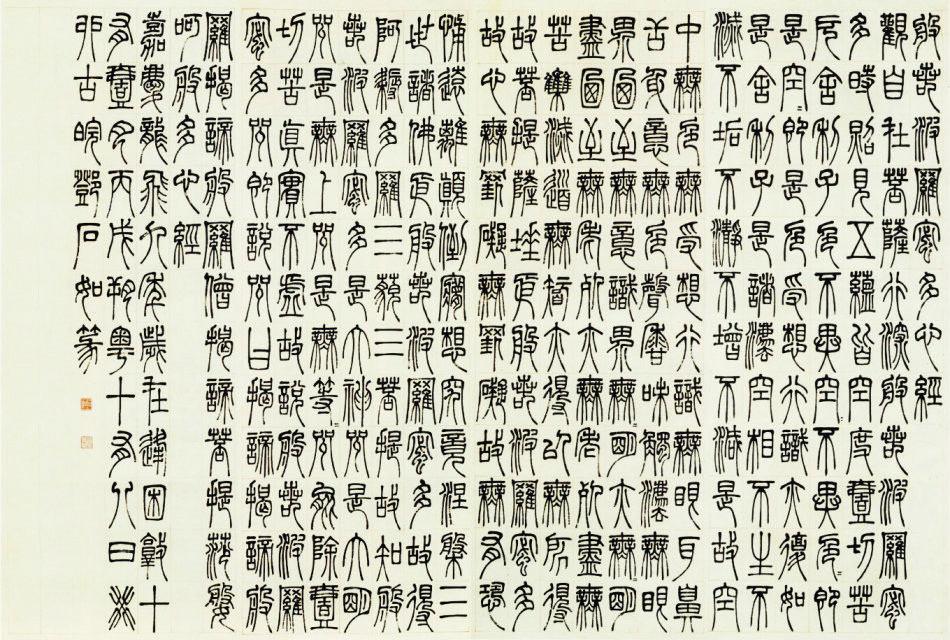 般若波羅蜜多心經
觀自在菩薩行深般若波羅蜜
多時照見五蘊皆空度壹切苦
厄舍利子色不異空=不異色=即
是空=即是色受想行識亦復如
是舍利子是諸法空相不生不
滅不垢不瀞不增不減是故空
中無色無受想行識無眼耳鼻
舌身意無色聲香味觸法無眼
界乃至無意識界無=明亦無=明
盡乃至無老死亦無老死盡無
苦集滅道無智亦得以無所得
故菩提薩埵依般若波羅蜜多
故心無罣礙無罣礙故無有恐
怖遠離顛倒夢想究竟涅槃三
世諸佛依般若波羅蜜多故得
阿耨多羅三藐三菩提故知般
若波羅蜜多是大神咒是大明
咒是無上咒是無等=咒能除壹
切苦真實不虛故說般若波羅
蜜多咒即說咒曰揭諦揭諦般
羅揭諦般羅僧揭諦菩提薩婆
訶般多心經
嘉慶龍飛九年歲在逢困敦十
有壹月丙戌朔粵十有八日癸
卯古皖鄧石如篆